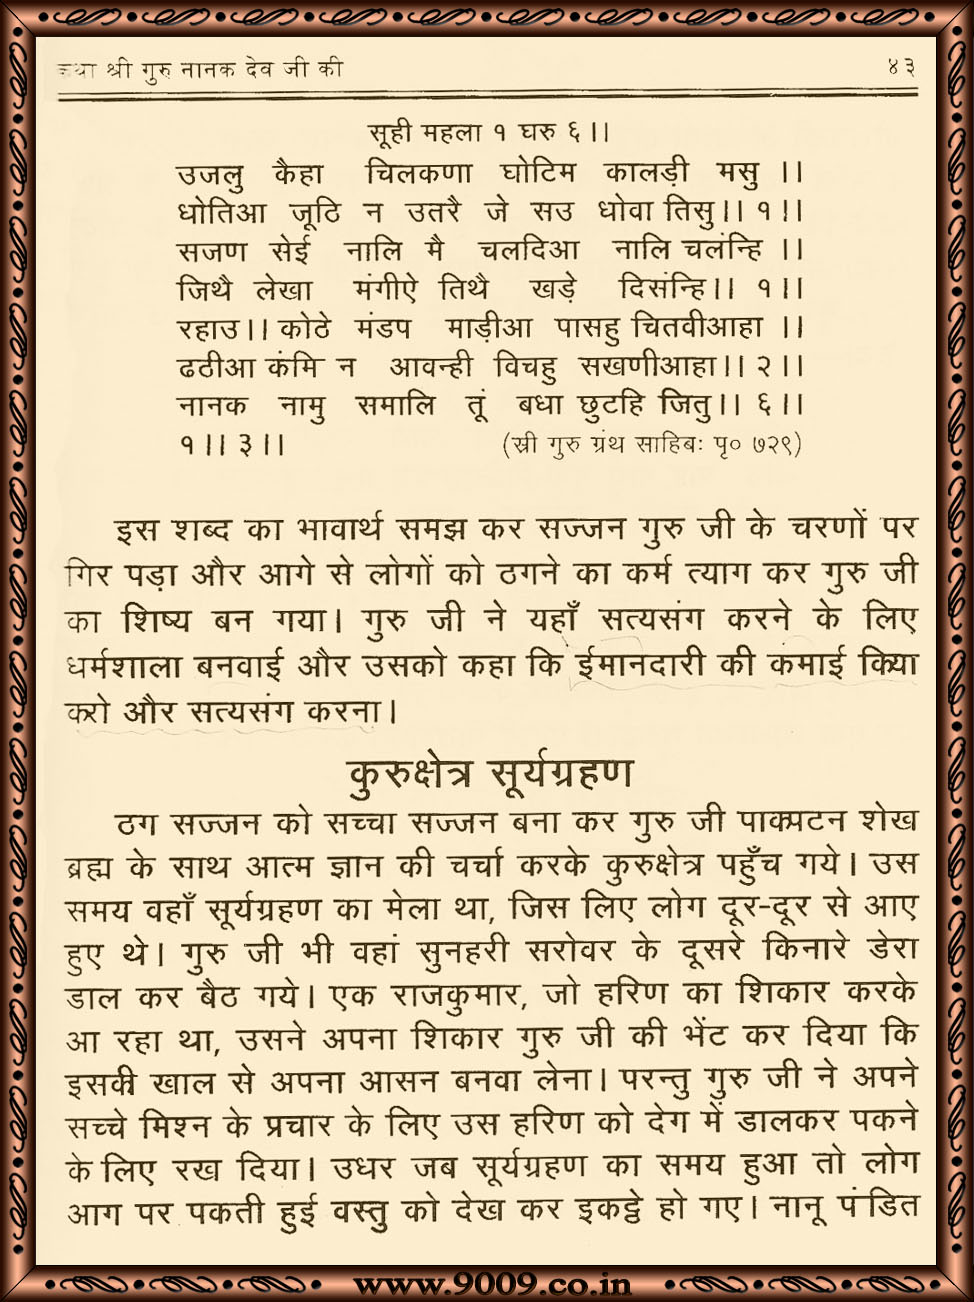 कथा श्री गुरु नानक देव जी की ४३
सूही महला १ घरु ६।।
उजलु कैहा चिलकणा घोटिम कालड़ी मसु ।।
धोतिआ जूठि न उतरै जे सउ धोवा तिसु।। १।।
सजण सेई नालि मै चलदिआ नालि चलंन्हि ।।
जिथै लेखा मंगीऐ तिथै खड़े दिसंन्हि।। १।।
रहाउ।। कोठे मंडप माड़ीआ पासहु चितवीआहा ।।
ढठीआ कंमि न आवन्ही विचहु सखणीआहा।। २।।
नानक नामु समालि तूं बधा छुटहि जितु।। ६।।
१।। ३।। (स्री गुरु ग्रंथ साहिबः पृ० ७२९)
इस शब्द का भावार्थ समझ कर सज्जन गुरु जी के चरणों पर
गिर पड़ा और आगे से लोगों को ठगने का कर्म त्याग कर गुरु जी
का शिष्य बन गया। गुरु जी ने यहाँ सत्यसंग करने के लिए
धर्मशाला बनवाई और उसको कहा कि ईमानदारी की कमाई किया
करो और सत्यसंग करना।
कुरुक्षेत्र सूर्यग्रहण
ठग सज्जन को सच्चा सज्जन बना कर गुरु जी पाकपटन शेख
ब्रह्म के साथ आत्म ज्ञान की चर्चा करके कुरुक्षेत्र पहुँच गये। उस
समय वहाँ सूर्यग्रहण का मेला था, जिस लिए लोग दूर-दूर से आए
हुए थे। गुरु जी भी वहां सुनहरी सरोवर के दूसरे किनारे डेरा
डाल कर बैठ गये। एक राजकुमार, जो हरिण का शिकार करके
आ रहा था, उसने अपना शिकार गुरु जी की भेंट कर दिया कि
इसकी खाल से अपना आसन बनवा लेना। परन्तु गुरु जी ने अपने
सच्चे मिश्न के प्रचार के लिए उस हरिण को देग में डालकर पकने
के लिए रख दिया। उधर जब सूर्यग्रहण का समय हुआ तो लोग
आग पर पकती हुई वस्तु को देख कर इकट्ठे हो गए। नानू पंडित
www.9009.co.in